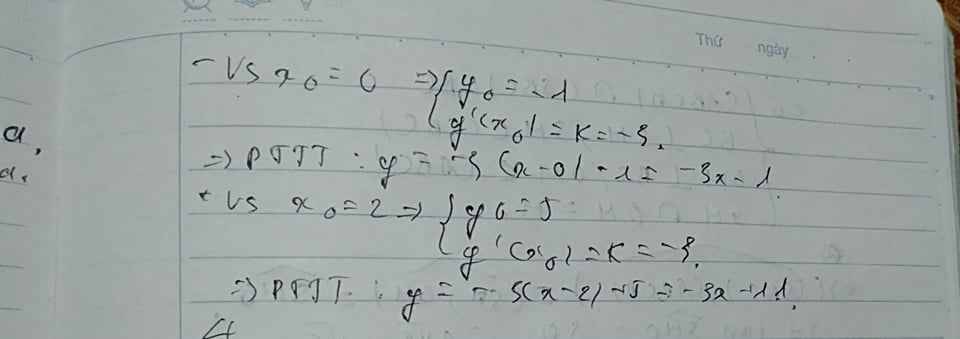 Thứ ngày
- Vs x₀ = 0 => { y₀ = -1
y'(x₀) = K = -3.
=> PTTT : y = -3 (x-0) - 1 = -3x - 1
+ Vs x₀ = 2 => { y₀ = 5
y'(x₀) = K = -3.
=> PTTT : y = -3(x-2) + 5 = -3x + 11.
a,
d.